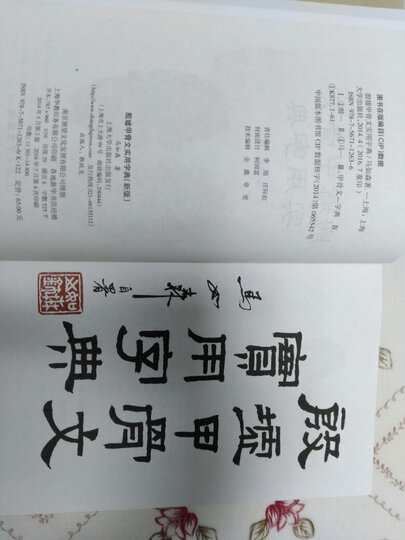 图书在版编目(CIP)数据
殷墟甲骨文实用字典/马如森著.—上海:上海
大学出版社,2014.4(2016.7重印)
ISBN 978-7-5671-1263-6
Ⅰ.①殷… Ⅱ.①马… Ⅲ.甲骨文—字典 Ⅳ.
①K877.1-61
中国版本图书馆CIP数据核字(2014)第065542号
责任编辑
封面设计 柯国富
技术编辑 金鑫 章斐
殷墟甲骨文实用字典(新版)
马如森 著
上海大学出版社出版发行
(上海市上大路99号 邮政编码200444)
(http://www.shangdapress.com 发行热线021-66135112)
出版人 郭纯生
南京展望文化发展有限公司排版
上海华教印务有限公司印刷 各地新华书店经销
开本787×960 1/16 印张29 字数525千
2014年5月第2版 2016年7月第2次印刷
ISBN 978-7-5671-1263-6/K·122 定价:65.00元
殷墟甲骨文
實用字典
馬如森自署